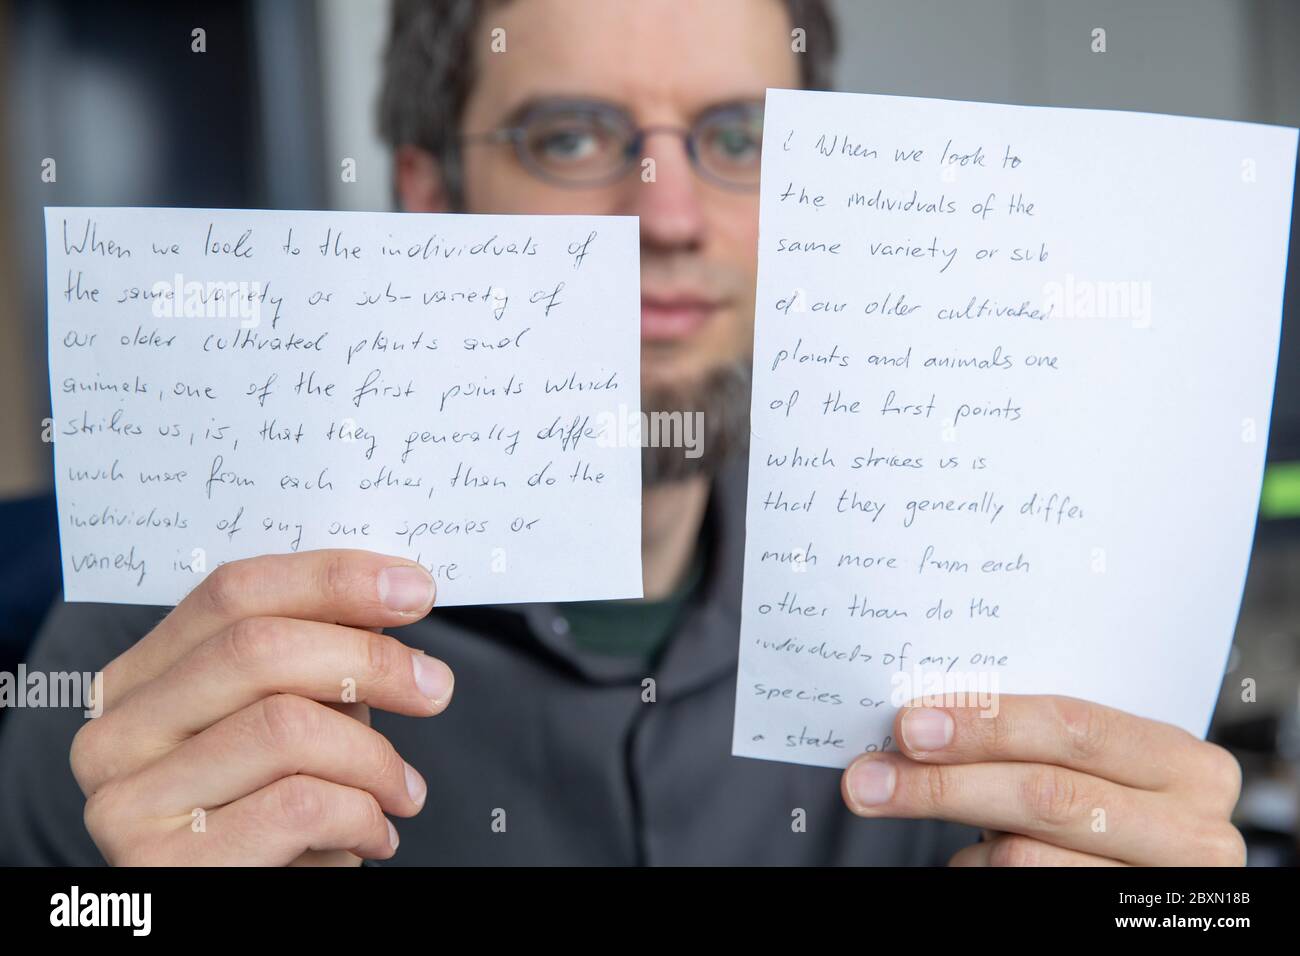 When we look to the individuals of
the same variety or sub-variety of
our older cultivated plants and
animals, one of the first points which
strikes us, is, that they generally differ
much more from each other, than do the
individuals of any one species or
variety in
i When we look to
the individuals of the
same variety or sub
of our older cultivated
plants and animals one
of the first points
which strikes us is
that they generally differ
much more from each
other than do the
individuals of any one
species or
a state of
alamy
Image ID: 2BXN18B
www.alamy.com